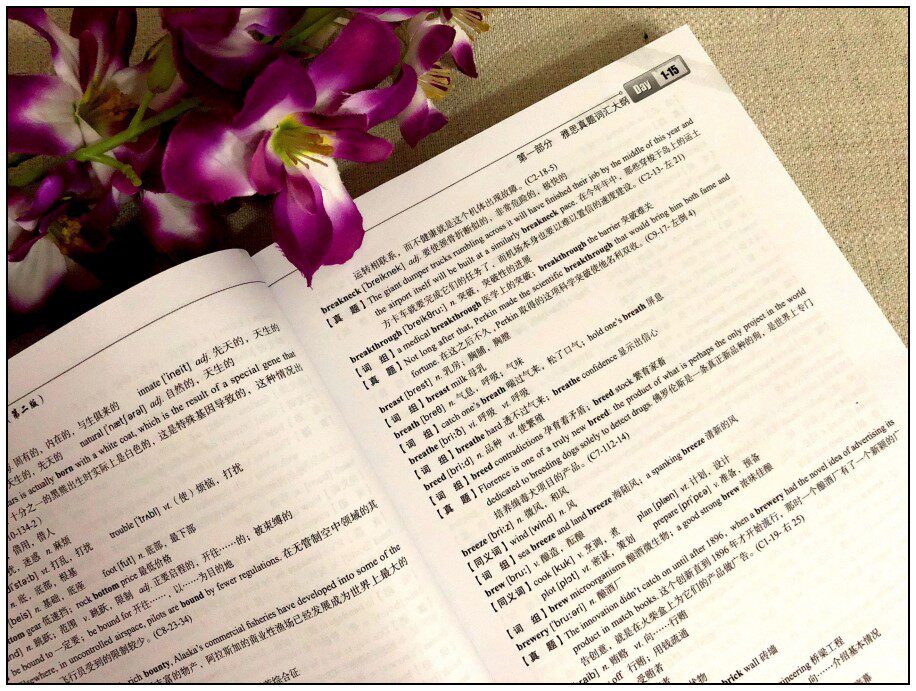 (第二版)
固有的，内在的，与生俱来的 innate [ˌɪˈneɪt] adj. 先天的，天生的
天生的，先天的 natural [ˈnætʃərəl] adj. 自然的，天生的
ars is actually born with a white coat, which is the result of a special gene that
十分之一的黑熊出生时实际上是白色的，这是特殊基因导致的，这种情况出
0-134-2)
借用，借人
扰，迷惑 n. 麻烦 trouble [ˈtrʌbl] vt. （使）烦恼，打扰
vt. 打乱，打扰
n. 底，底部，根基 foot [fʊt] n. 底部，最下部
[beɪs] n. 基础，底座
ttom gear 低速挡；rock bottom price 最低价格
n. 跳跃；范围 v. 跳跃，限制 adj. 正要启程的，开往……的；被束缚的
be bound to 一定要；be bound for 开往……，以……为目的地
Elsewhere, in uncontrolled airspace, pilots are bound by fewer regulations. 在无管制空中领域的其
飞行员受到的限制较少。(C8-23-34)
rich bounty, Alaska's commercial fisheries have developed into some of the
丰富的物产，阿拉斯加的商业性渔场已经发展成为世界上最大的
综合征
Day 1-15
第一部分 雅思真题词汇大纲
运转相联系，而不健康就是这个机体出现故障。(C2-18-5)
breakneck [ˈbreɪknek] adj. 要使颈骨折断似的，非常危险的，极快的
【真 题】The giant dumper trucks rumbling across it will have finished their job by the middle of this year and
the airport itself will be built at a similarly breakneck pace. 在今年年中，那些穿梭于岛上的运土
方卡车就要完成它们的任务了，而机场本身也要以难以置信的速度建设。(C2-13-左 21)
breakthrough [ˈbreɪkθruː] n. 突破，突破性的进展
【词 组】a medical breakthrough 医学上的突破；breakthrough the barrier 突破难关
【真 题】Not long after that, Perkin made the scientific breakthrough that would bring him both fame and
fortune. 在这之后不久，Perkin 取得的这项科学突破使他名利双收。(C9-17-左倒 4)
breast [brest] n. 乳房，胸脯，胸膛
【词 组】breast milk 母乳
breath [breθ] n. 气息，呼吸；气味
【词 组】catch one's breath 喘过气来，松了口气；hold one's breath 屏息
breathe [briːð] vi. 呼吸 vt. 呼吸
【词 组】breathe hard 透不过气来；breathe confidence 显示出信心
breed [briːd] n. 品种 v. 使繁殖
【词 组】breed contradictions 孕育着矛盾；breed stock 繁育家畜
【真 题】Florence is one of a truly new breed: the product of what is perhaps the only project in the world
dedicated to breeding dogs solely to detect drugs. 佛罗伦斯是一条真正新品种的狗，是世界上专门
培养缉毒犬项目的产品。(C7-112-14)
breeze [briːz] n. 微风，和风
【同义词】wind [wɪnd] n. 风
【词 组】sea breeze and land breeze 海陆风；a spanking breeze 清新的风
brew [bruː] v. 酿造，酝酿 plan [plæn] v. 计划，设计
【同义词】cook [kʊk] v. 烹调，煮 prepare [prɪˈpeə] v. 准备，预备
plot [plɒt] v. 密谋，策划
【词 组】brew microorganisms 酿酒微生物；a good strong brew 浓味佳酿
brewery [ˈbruːəri] n. 酿酒厂
【真 题】The innovation didn't catch on until after 1896, when a brewery had the novel idea of advertising its
product in match books. 这个创新直到 1896 年才开始流行，那时一个酿酒厂有了一个新颖的广
告创意，就是在火柴盒上为它们的产品做广告。(C1-19-右 25)
vt. 贿赂 vi. 向……行贿
off 行贿；用钱疏通
受贿者
brick wall 砖墙
engineering 桥梁工程
向……介绍基本情况